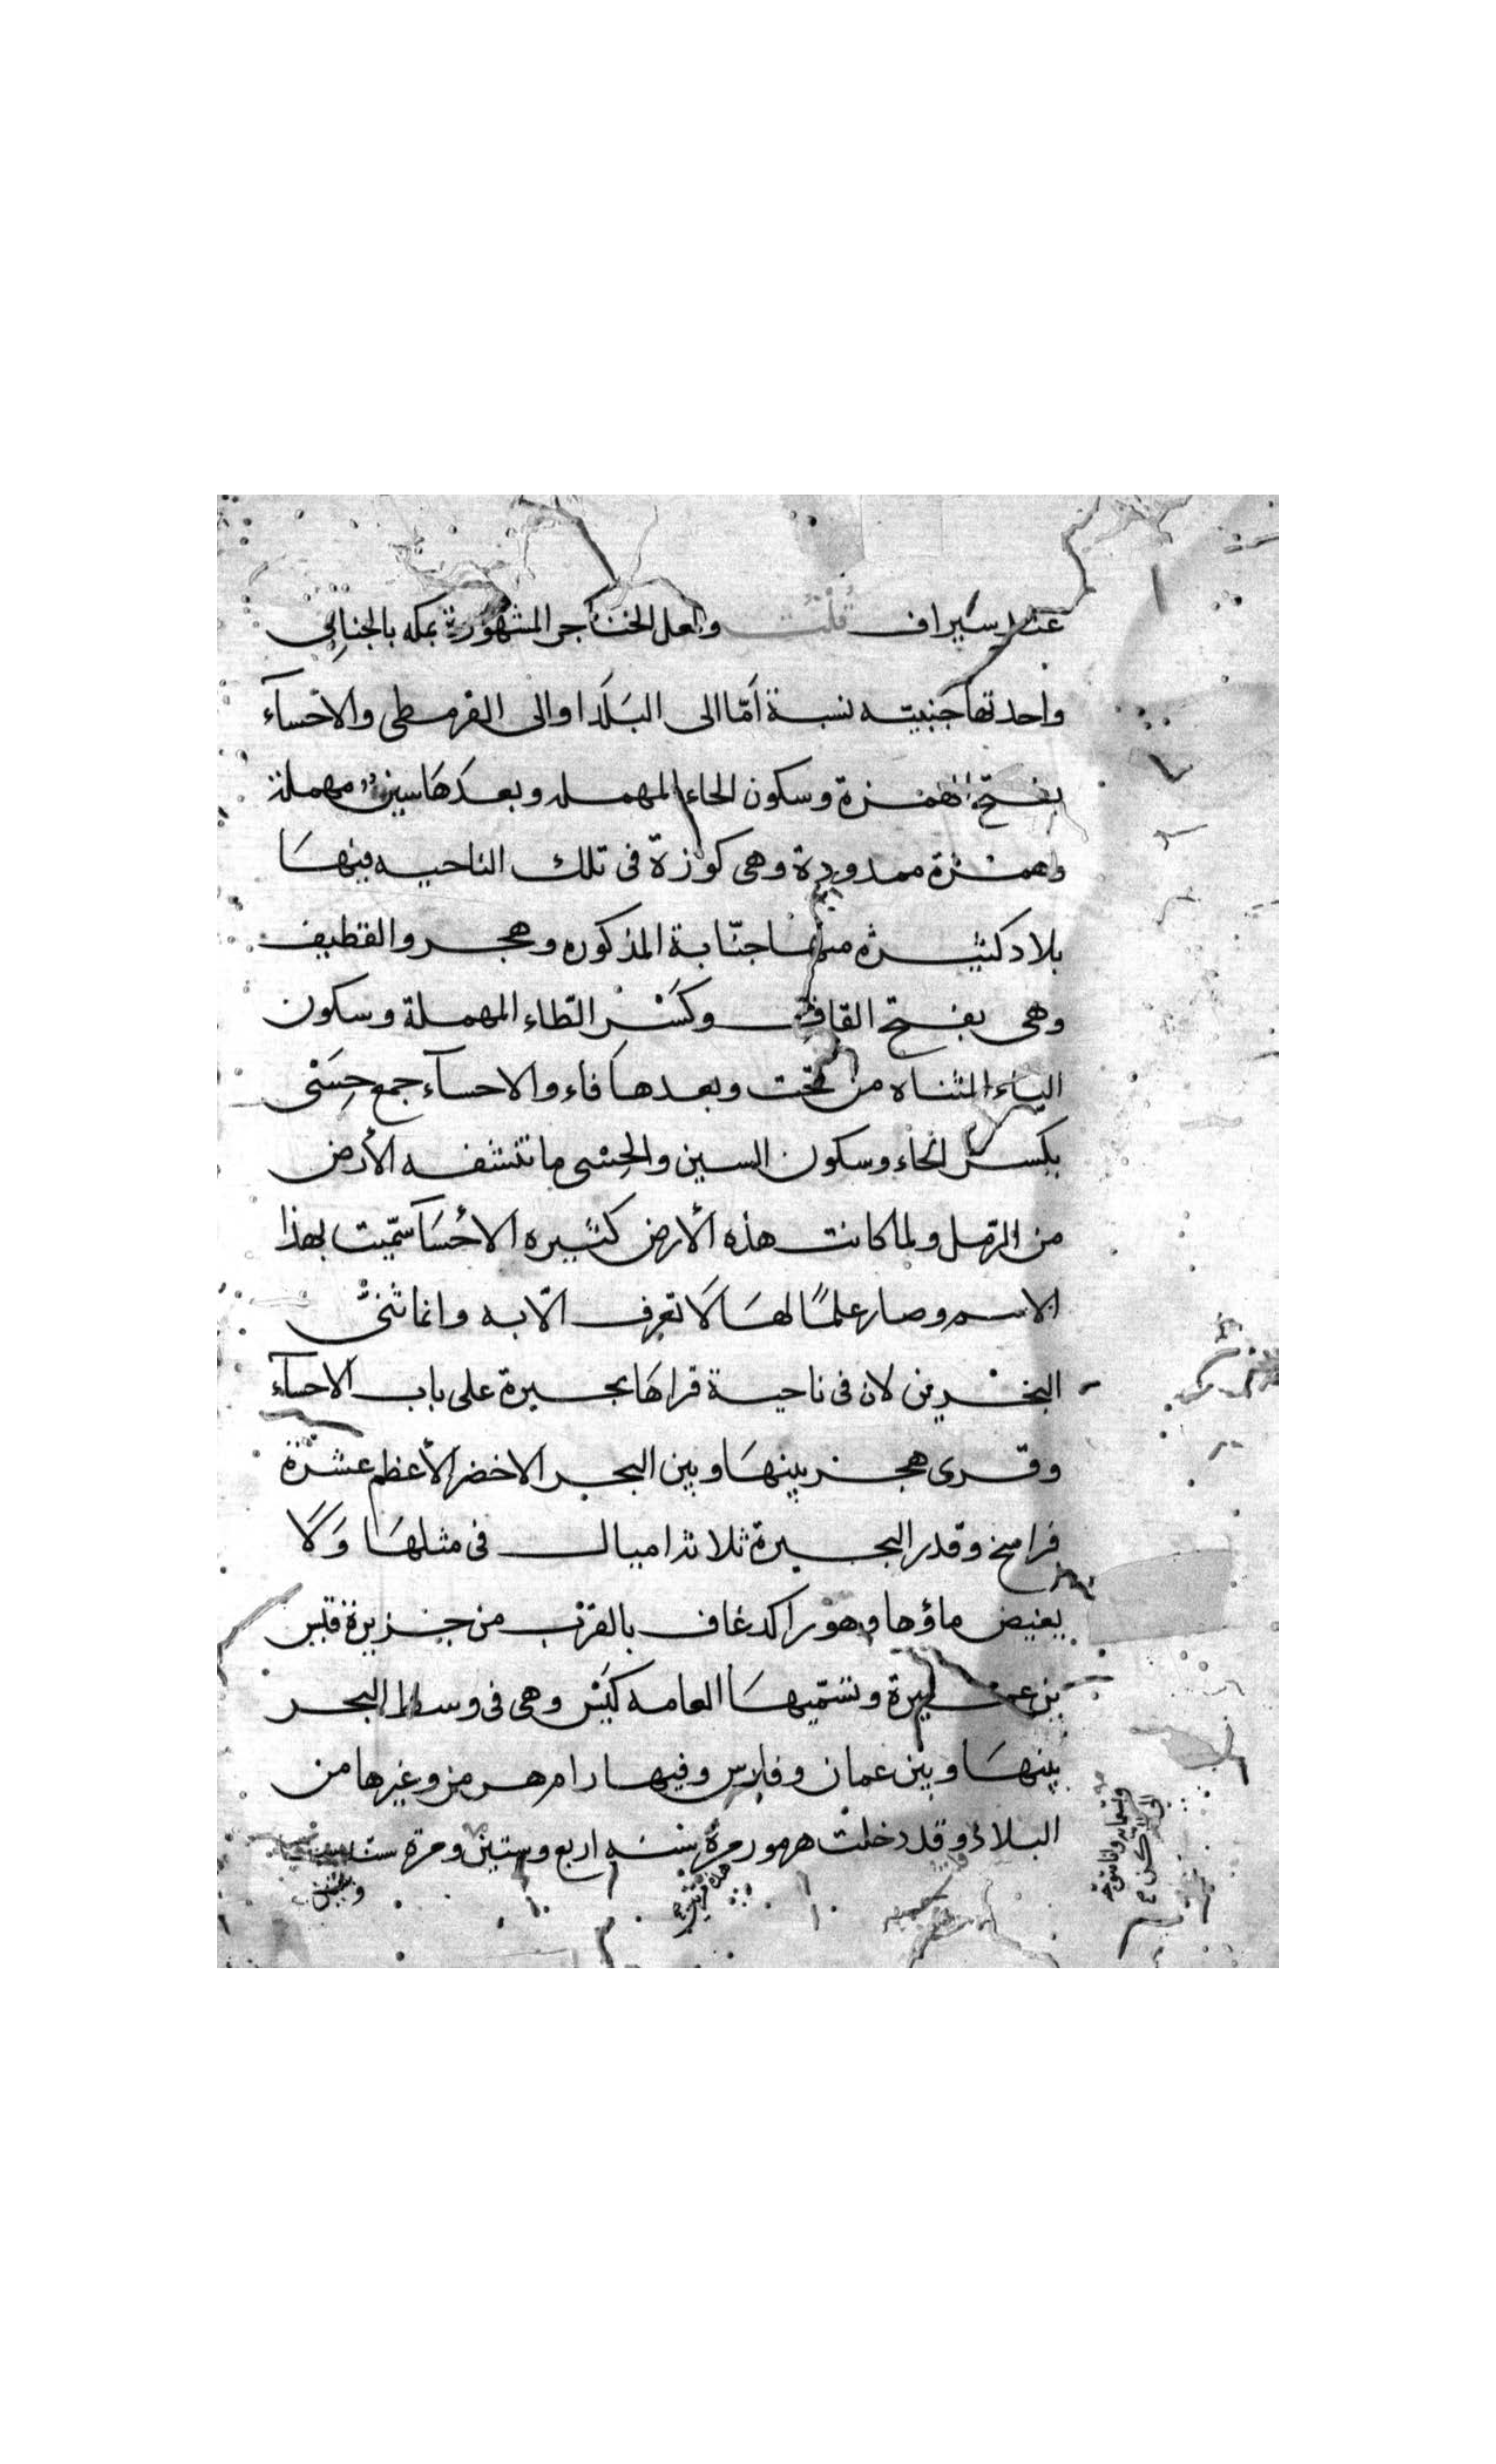 عند سيراف قلت ولعل الخناجر المشهورة بمكه بالجنابي
واحدتها جنبيته نسبة اَمّا الى البَلَد او الى القرمطى والاحْسآء
بفتح الهمزة وسكون الحاء المهمله وبعدَهَا سين مهملة
وهمزة ممدودة وهى كورة فى تلك الناحيه فيهَا
بلاد كثيرة منها جنّابة المذكوره وهجر والقطيف
وهى بفتح القاف وكَسْر الطّاء المهملة وسكون
الياء المثناه من تحت وبعدها فاء والاحسآء جمع حِسَْى
بكسر الحاء وسكون السين والحِسْى ما تنشفه الأرض
من الرّمل ولما كانت هذه الأرض كثيره الاحْسَآ سمّيت بهذا
الاسم وصار علمًا لهَا لَا تعرف الّا به وانما ثنىّ
البحْرين لان فى ناحية قراهَا بحيرة على باب الاحسآء
وقرى هجر بينهَا وبين البحر الاخضر الأعظم عشرة
فراسخ وقدر البحيرة ثلاثة اميال فى مثلهَا وَلَا
يغيض ماؤها وهو راكد غاف بالقرب من جزيرة قيس
بن عميرة وتسمّيهَا العامه كيَش وهى فى وسط البحر
بينهَا وبين عمان وفارس وفيها رامهرمز وغيرها من
البلاد وقد دخلت هرمور مرة سنَه اربع وستين ومرة ست
وستين